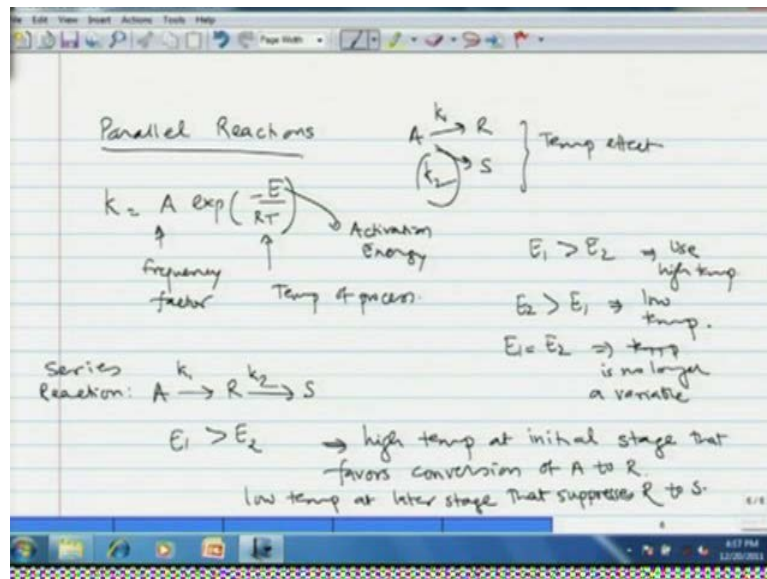 File Edit View Insert Actions Tools Help
Page Width
Parallel Reactions
A k₁ → R
k₂ → S
} Temp effect
k = A exp(-E/RT)
Activation Energy
frequency factor
Temp of process.
E₁ > E₂ ⇒ Use high temp
E₂ > E₁ ⇒ low temp.
E₁ = E₂ ⇒ temp is no longer a variable
Series Reaction: A k₁ → R k₂ → S
E₁ > E₂ → high temp at initial stage that
favors conversion of A to R.
low temp at later stage that suppresses R to S.
6/6
6
4:57 PM
12/20/2011